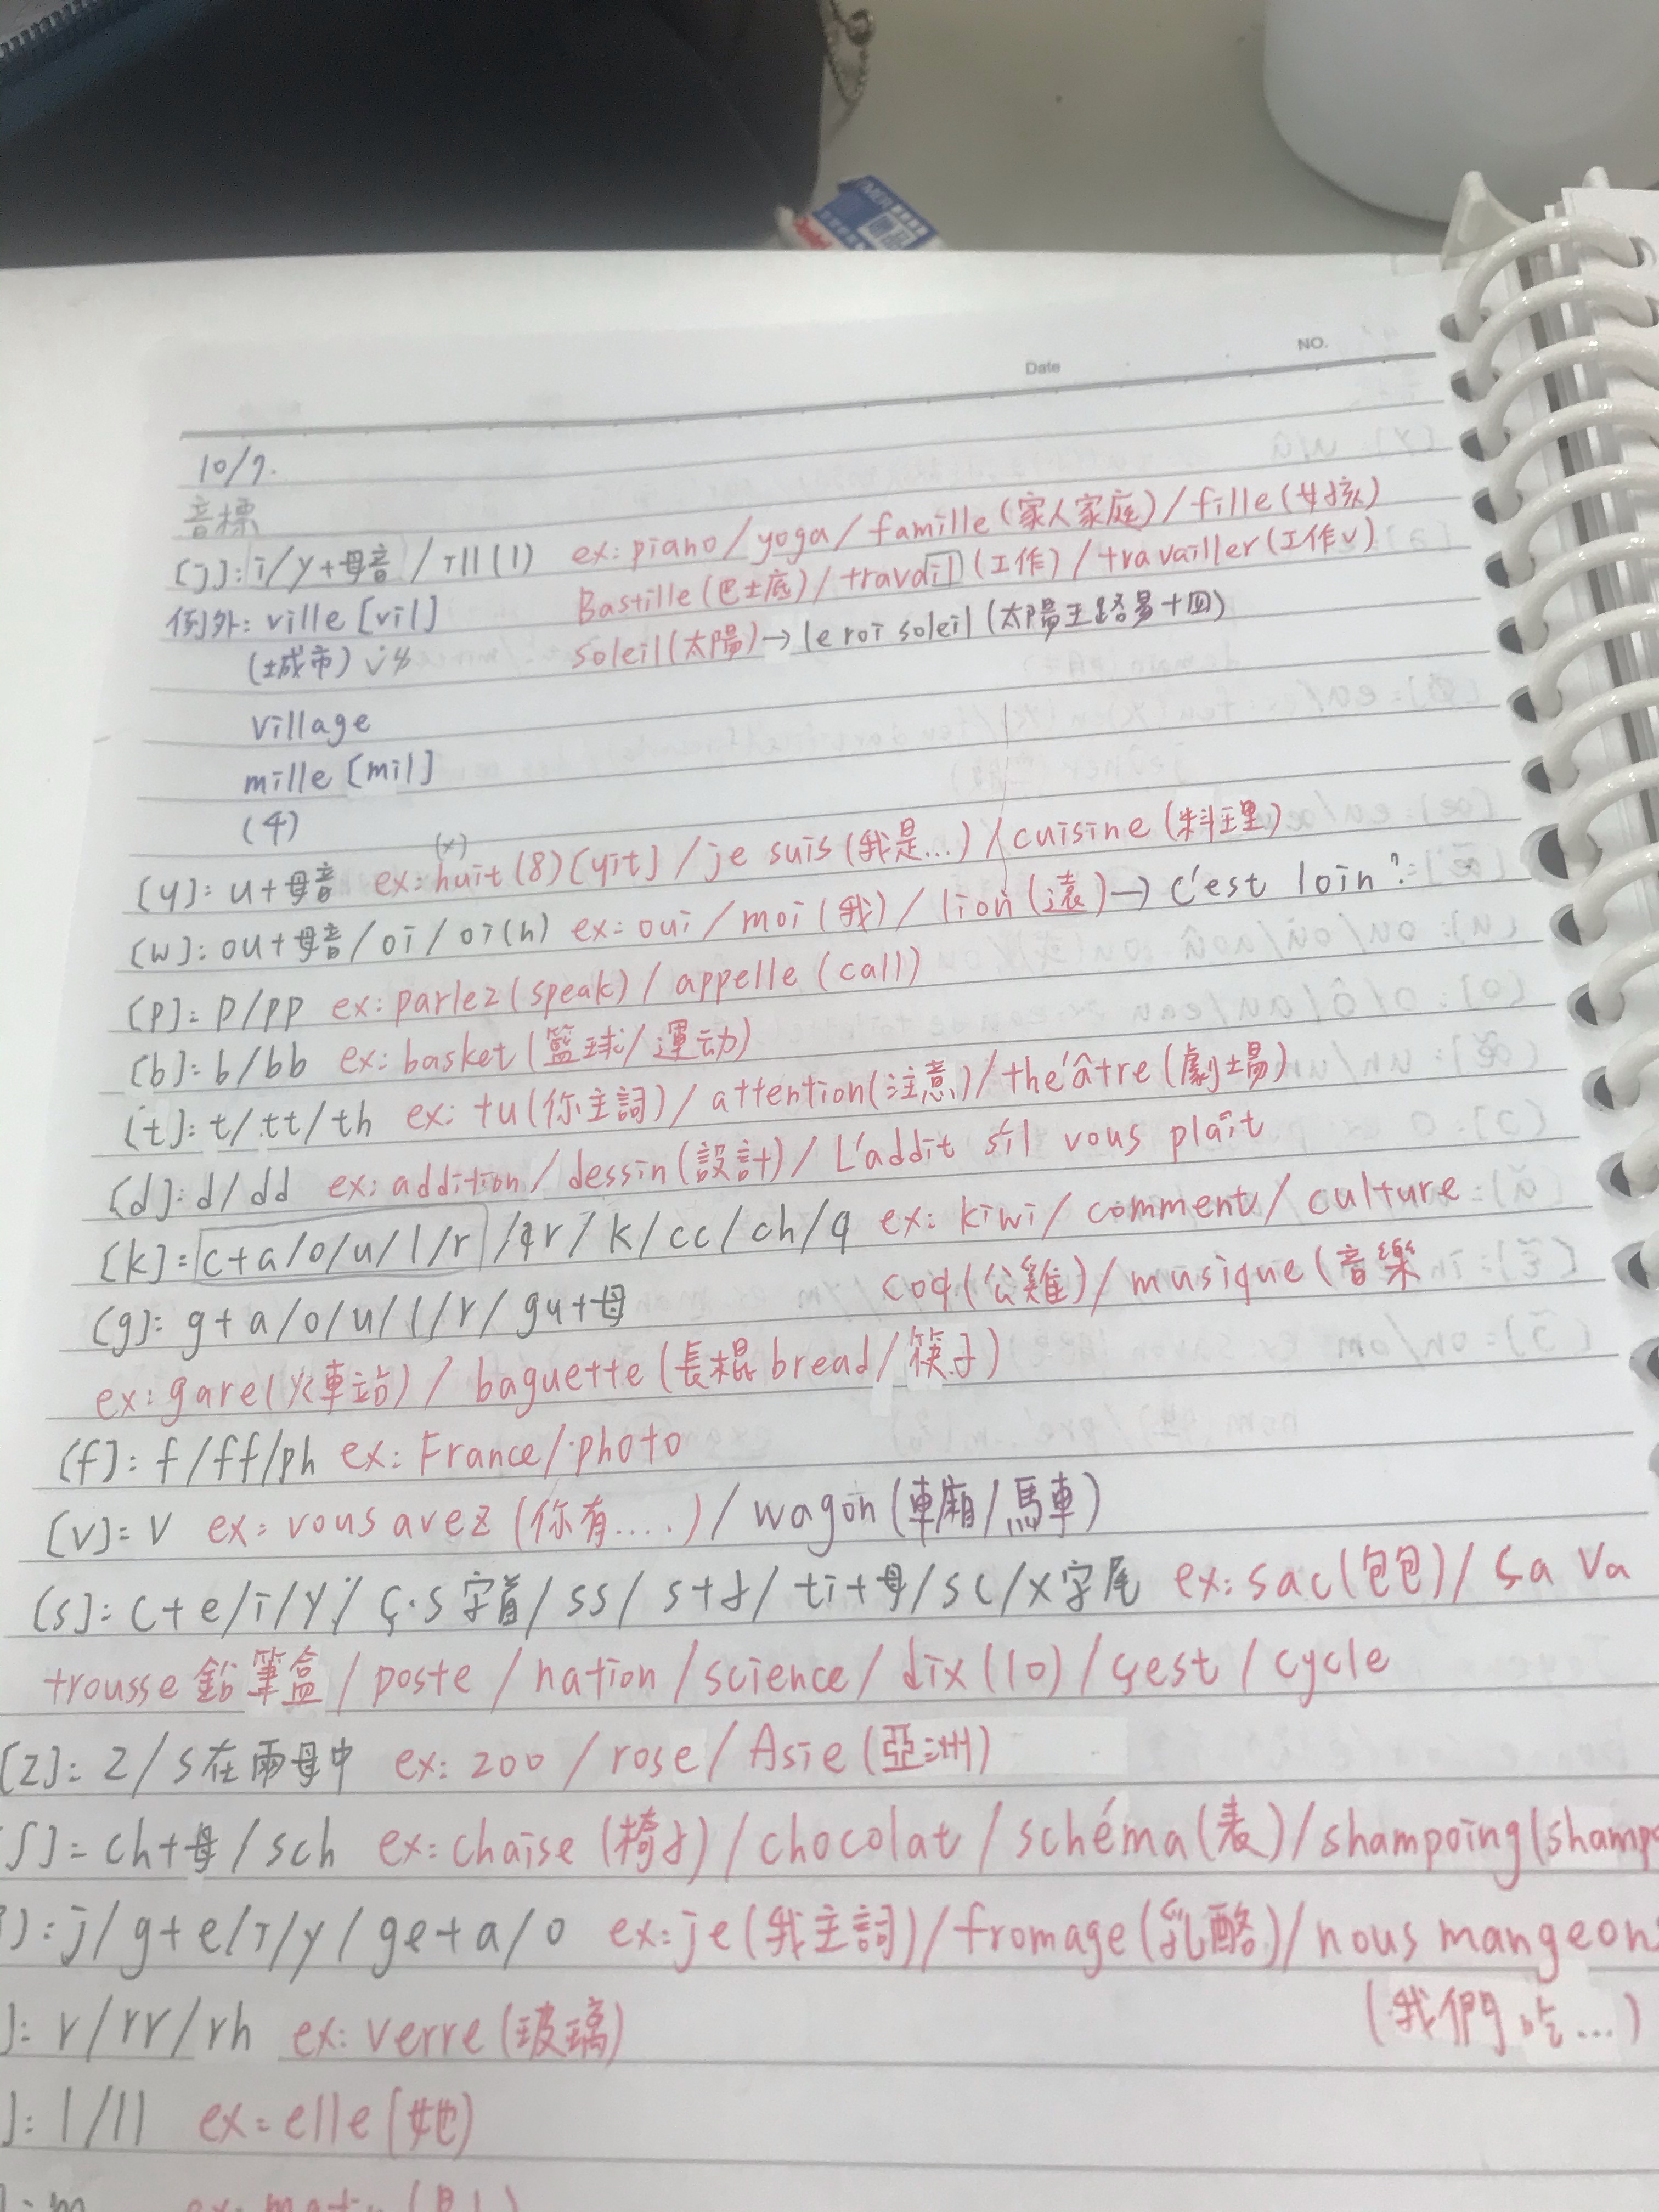 Date
NO.
10/7.
音標
[j]: i/y+母音 / ill(l) ex: piano/yoga/famille(家人家庭)/fille(女孩)
Bastille(巴士底)/travail(工作)/travailler(工作v)
例外: ville [vil]
soleil(太陽)→le roi soleil (太陽王路易十四)
(城市)
village
mille [mil]
(千)
(x)
[y]: u+母音 ex: huit (8)[yit] / je suis (我是...) / cuisine (料理)
[w]: ou+母音/oi/oi(n) ex: oui/moi(我)/lion(遠)→c'est loin?
[p]: p/pp ex: parlez(speak)/appelle (call)
[b]: b/bb ex: basket(籃球/運动)
[t]: t/tt/th ex: tu(你主詞)/attention(注意)/théâtre(劇場)
[d]: d/dd ex: addition/dessin(設計)/L'addit s'il vous plaît
[k]: c+a/o/u/l/r /qr/k/cc/ch/q ex: kiwi/comment/culture
coq(公雞)/musique(音樂
[g]: g+a/o/u/l/r/gu+母
ex: gare(火車站)/baguette(長棍bread/筷子)
[f]: f/ff/ph ex: France/photo
[v]: v ex: vous avez (你有.....)/wagon(車廂/馬車)
[s]: c+e/i/y/ ç·s字首/ss/s+子/ti+母/sc/x字尾 ex: sac(包包)/ça va
trousse鉛筆盒/poste/nation/science/dix(10)/çest/cycle
[z]: z/s在兩母中 ex: zoo/rose/Asie(亞洲)
ʃ]: ch+母/sch ex: chaise(椅子)/chocolat/schéma(表)/shampoing(shamp
]: j/g+e/i/y/ge+a/o ex: je(我主詞)/fromage(乳酪)/nous mangeons
(我們吃...)
]: r/rr/rh ex: verre(玻璃)
]: l/ll ex: elle(她)
]: m